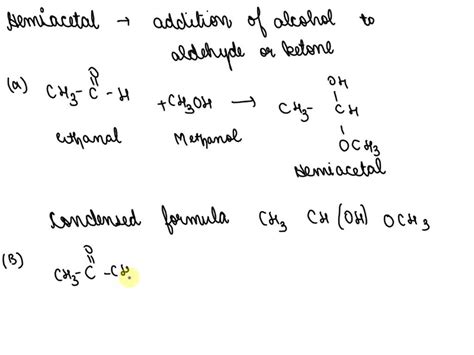 Hemiacetal → addition of alcohol to
aldehyde or ketone
(a) CH3 - C - H + CH3OH → CH3 - CH
O
OH
OCH3
Ethanal Methanol Hemiacetal
Condensed formula CH3 CH (OH) OCH3
(B) CH3 - C - CH
O